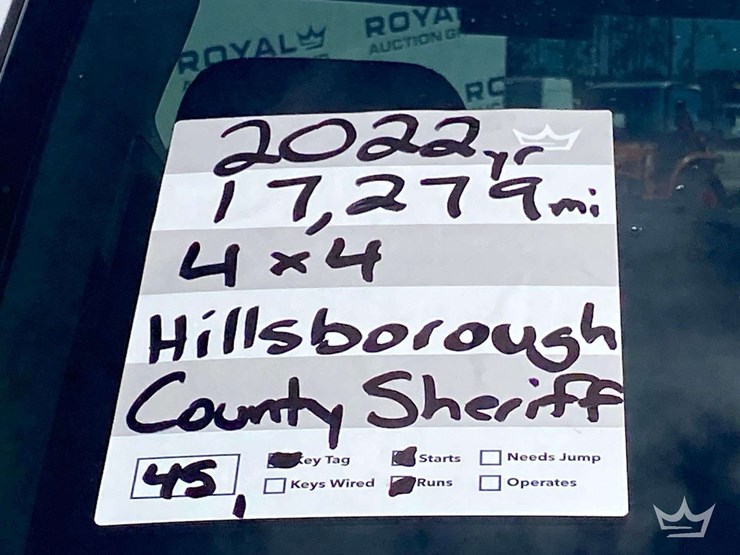 ROYAL
ROYAL
AUCTION
2022 yr
17,279 mi
4x4
Hillsborough
County Sheriff
45
Key Tag
Starts
Needs Jump
Keys Wired
Runs
Operates